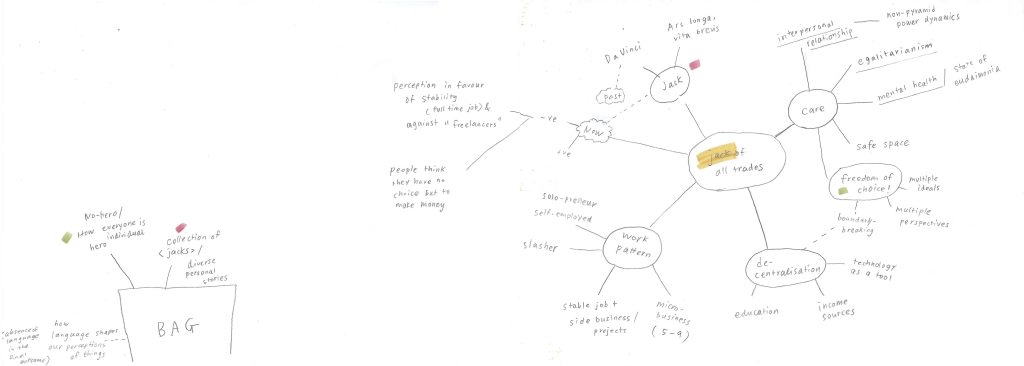 No-hero/
How everyone is
individual
hero
collection of
<jacks>/
diverse
personal
stories
BAG
"absence of
language
in the
final
outcome)
how
language shapes
our perceptions
of things
perception in favour
of stability
(full time job) &
against "freelancers"
people think
they have no
choice but to
make money
-ve
+ve
Now
past
Da Vinci
Ars longa,
vita brevis
Jack
jack of
all trades
interpersonal
relationship
non-pyramid
power dynamics
egalitarianism
mental health / state of
eudaimonia
care
safe space
freedom of
choice!
multiple
ideals
multiple
perspectives
boundary-
breaking
de-
centralisation
technology
as a tool
education
income
sources
work
pattern
solo-preneur
self-employed
slasher
stable job +
side business/
projects
micro-
business
(5-9)